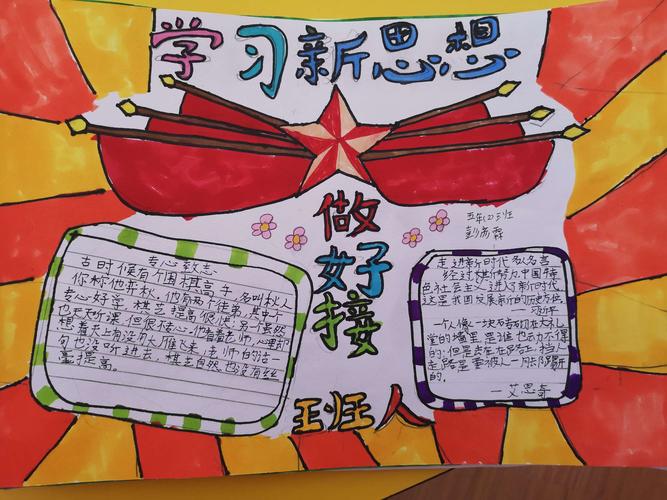 学习新思想
做好接
班班人
五年(2)班
专心致志
古时候有个围棋高手,名叫秋人
你称他弈秋,他有两个徒弟,其中个
专心好学,棋艺提高很快,另一虽然
也天天听课,但很
想着天上有没有大雁飞来,老师的话一
句也没听进去,棋艺自然也没有丝
毫提高。
走进新时代 名人名言
经过 努力,中国特
色社会主义进入了新时代
这是我国发展新的历史方位。
一个人像一块砖砌在大礼
堂的墙里,是谁也动不得
的;但是丢在路上,挡人
走路是要被人一脚踢开
的。
—艾思奇